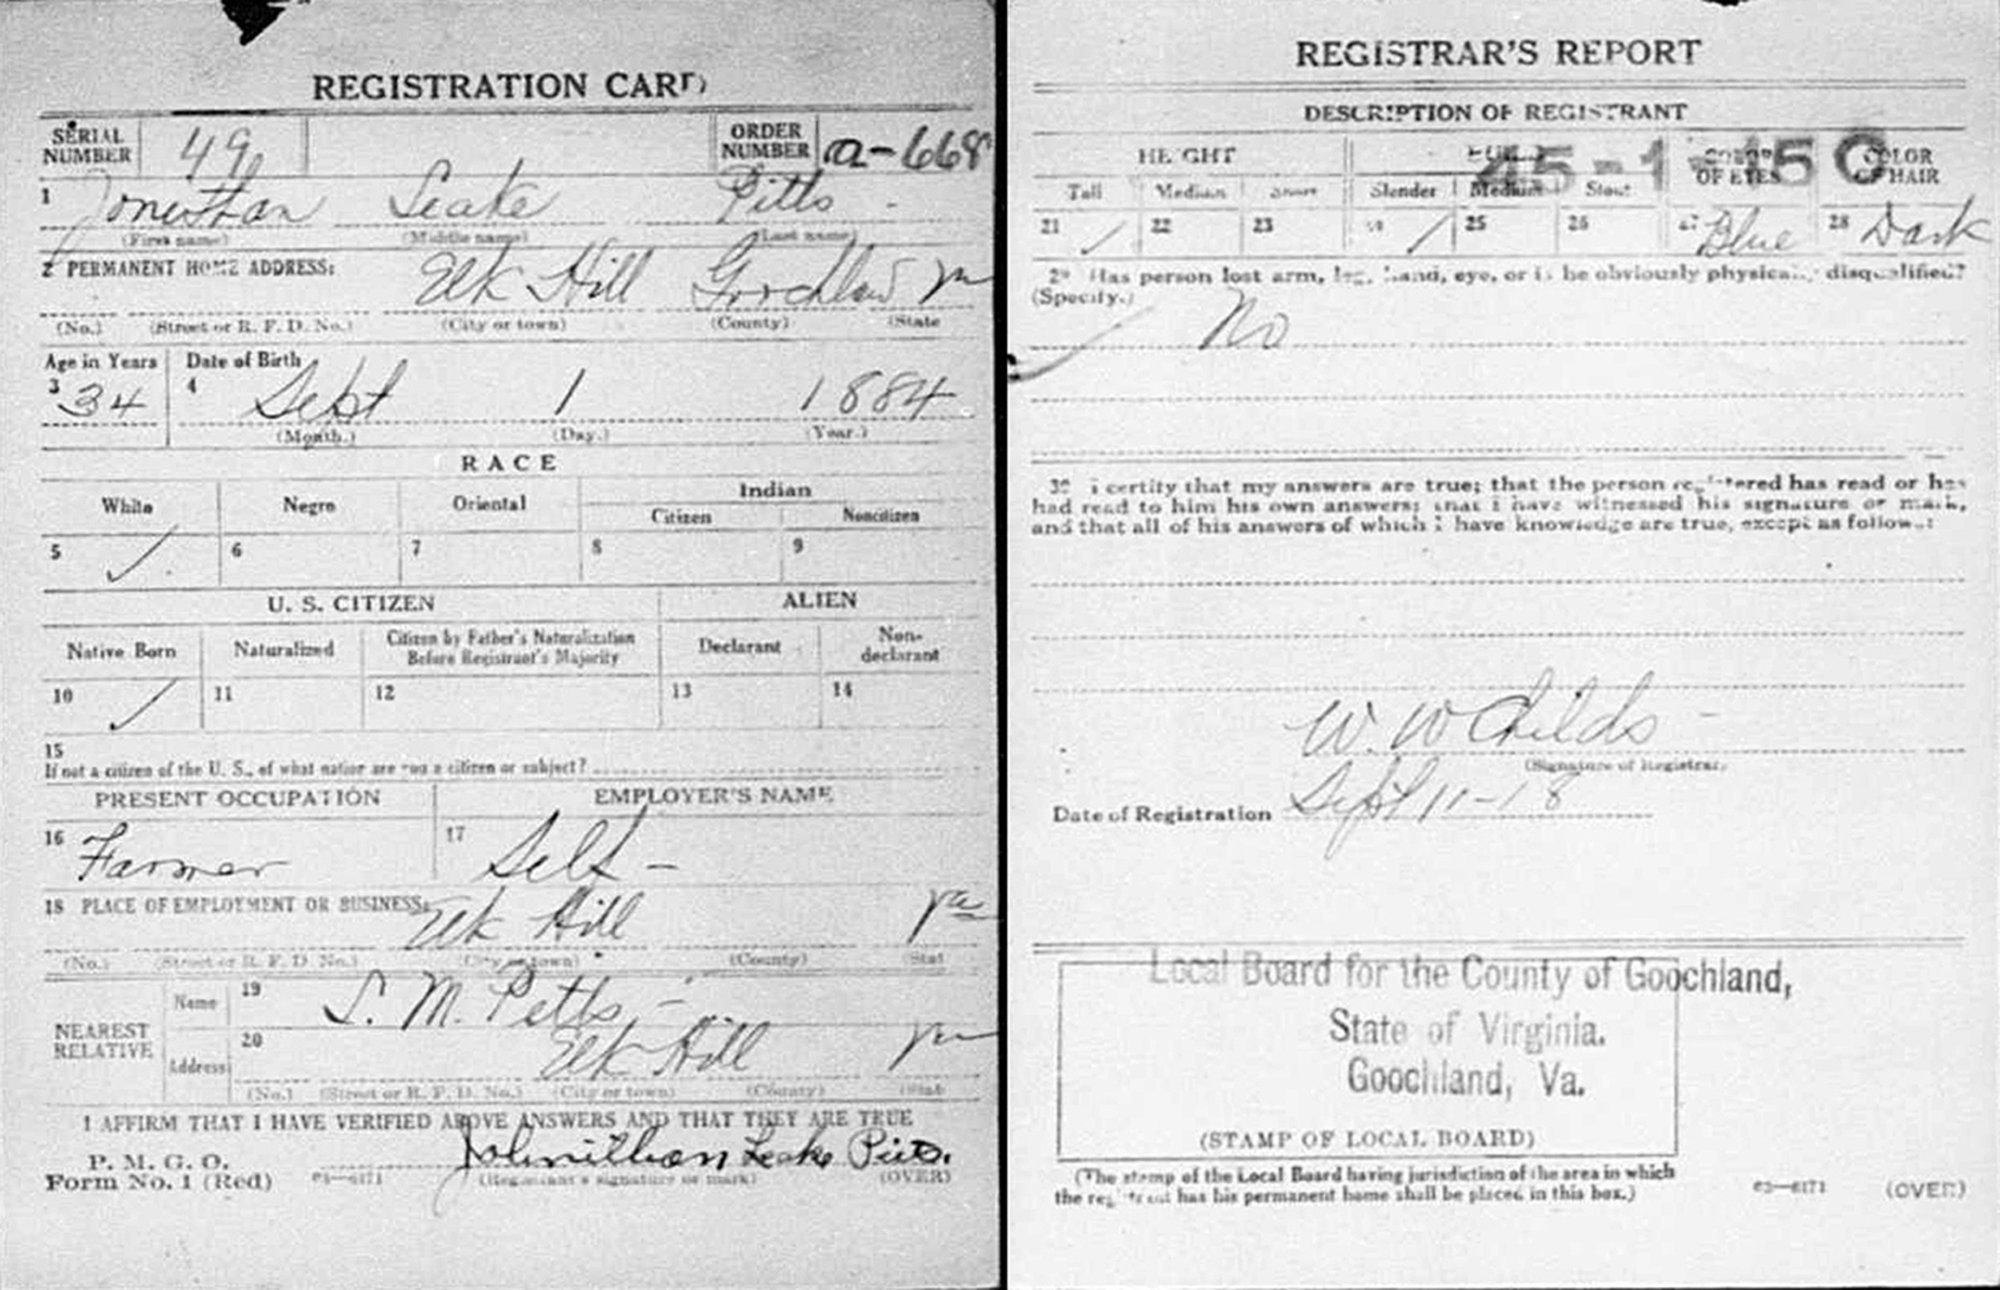 REGISTRATION CARD
SERIAL NUMBER 49 ORDER NUMBER a-668
1 Jonathan Leake Pitts
(First name) (Middle name) (Last name)
2 PERMANENT HOME ADDRESS: Elk Hill Goochland Va
(No.) (Street or R. F. D. No.) (City or town) (County) (State
Age in Years Date of Birth
3 34 4 Sept 1 1884
(Month.) (Day.) (Year.)
RACE
White Negro Oriental Indian
Citizen Noncitizen
5 6 7 8 9
U. S. CITIZEN ALIEN
Native Born Naturalized Citizen by Father's Naturalization Before Registrant's Majority Declarant Non-declarant
10 11 12 13 14
15
If not a citizen of the U. S., of what nation are you a citizen or subject?
PRESENT OCCUPATION EMPLOYER'S NAME
16 Farmer 17 Self -
18 PLACE OF EMPLOYMENT OR BUSINESS: Elk Hill Va
(No.) (Street or R. F. D. No.) (City or town) (County) (Stat
NEAREST RELATIVE Name 19 S. M. Pitts -
Address 20 Elk Hill Va
(No.) (Street or R. F. D. No.) (City or town) (County) (Stat
I AFFIRM THAT I HAVE VERIFIED ABOVE ANSWERS AND THAT THEY ARE TRUE
P. M. G. O.
Form No. 1 (Red) 03—6171 Leake Pitts.
(Registrant's signature or mark) (OVER)
REGISTRAR'S REPORT
DESCRIPTION OF REGISTRANT
45-1-15 C
HEIGHT BUILD COLOR OF EYES COLOR OF HAIR
Tall Medium Short Slender Medium Stout
21 22 23 24 25 26 27 Blue 28 Dark
29 Has person lost arm, leg, hand, eye, or is he obviously physically disqualified?
(Specify.) No
30 I certify that my answers are true; that the person registered has read or has
had read to him his own answers; that I have witnessed his signature or mark,
and that all of his answers of which I have knowledge are true, except as follows:
W. W Childs -
(Signature of Registrar)
Date of Registration Sept 11-18
Local Board for the County of Goochland,
State of Virginia.
Goochland, Va.
(STAMP OF LOCAL BOARD)
(The stamp of the Local Board having jurisdiction of the area in which
the registrant has his permanent home shall be placed in this box.)
03—6171 (OVER)